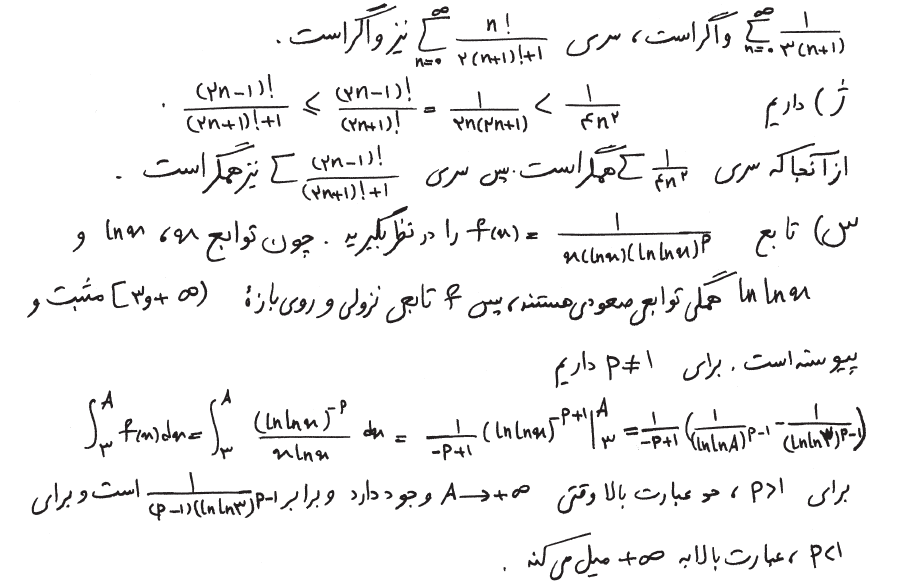 $\sum_{n=۰}^{\infty} \frac{1}{۳(n+1)}$ واگراست، سری $\sum_{n=۰}^{\infty} \frac{n!}{۲(n+1)!+1}$ نیز واگراست.
ژ) داریم $\frac{(۲n-1)!}{(۲n+1)!+1} \leq \frac{(۲n-1)!}{(۲n+1)!} = \frac{1}{۲n(۲n+1)} < \frac{1}{۴n^۲}$.
از آنجا که سری $\sum \frac{1}{۴n^۲}$ همگراست. پس سری $\sum \frac{(۲n-1)!}{(۲n+1)!+1}$ نیز همگراست.
س) تابع $f(x) = \frac{1}{x(\ln x)(\ln \ln x)^p}$ را در نظر بگیرید. چون توابع $x$، $\ln x$ و
$\ln \ln x$ همگی توابعی صعودی هستند، پس $f$ تابعی نزولی و روی بازهٔ $[۳, +\infty)$ مثبت و
پیوسته است. برای $p \neq 1$ داریم
$\int_۳^A f(x)dx = \int_۳^A \frac{(\ln \ln x)^{-p}}{x \ln x} dx = \frac{1}{-p+1} (\ln \ln x)^{-p+1} |_۳^A = \frac{1}{-p+1} (\frac{1}{(\ln \ln A)^{p-1}} - \frac{1}{(\ln \ln ۳)^{p-1}})$
برای $p>1$، حد عبارت بالا وقتی $A \to +\infty$ وجود دارد و برابر $\frac{1}{(p-1)(\ln \ln ۳)^{p-1}}$ است و برای
$p<1$، عبارت بالا به $+\infty$ میل می‌کند.